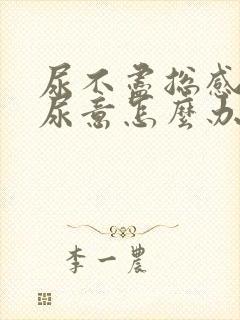 尿不盡總感
尿意怎麼办
李一農